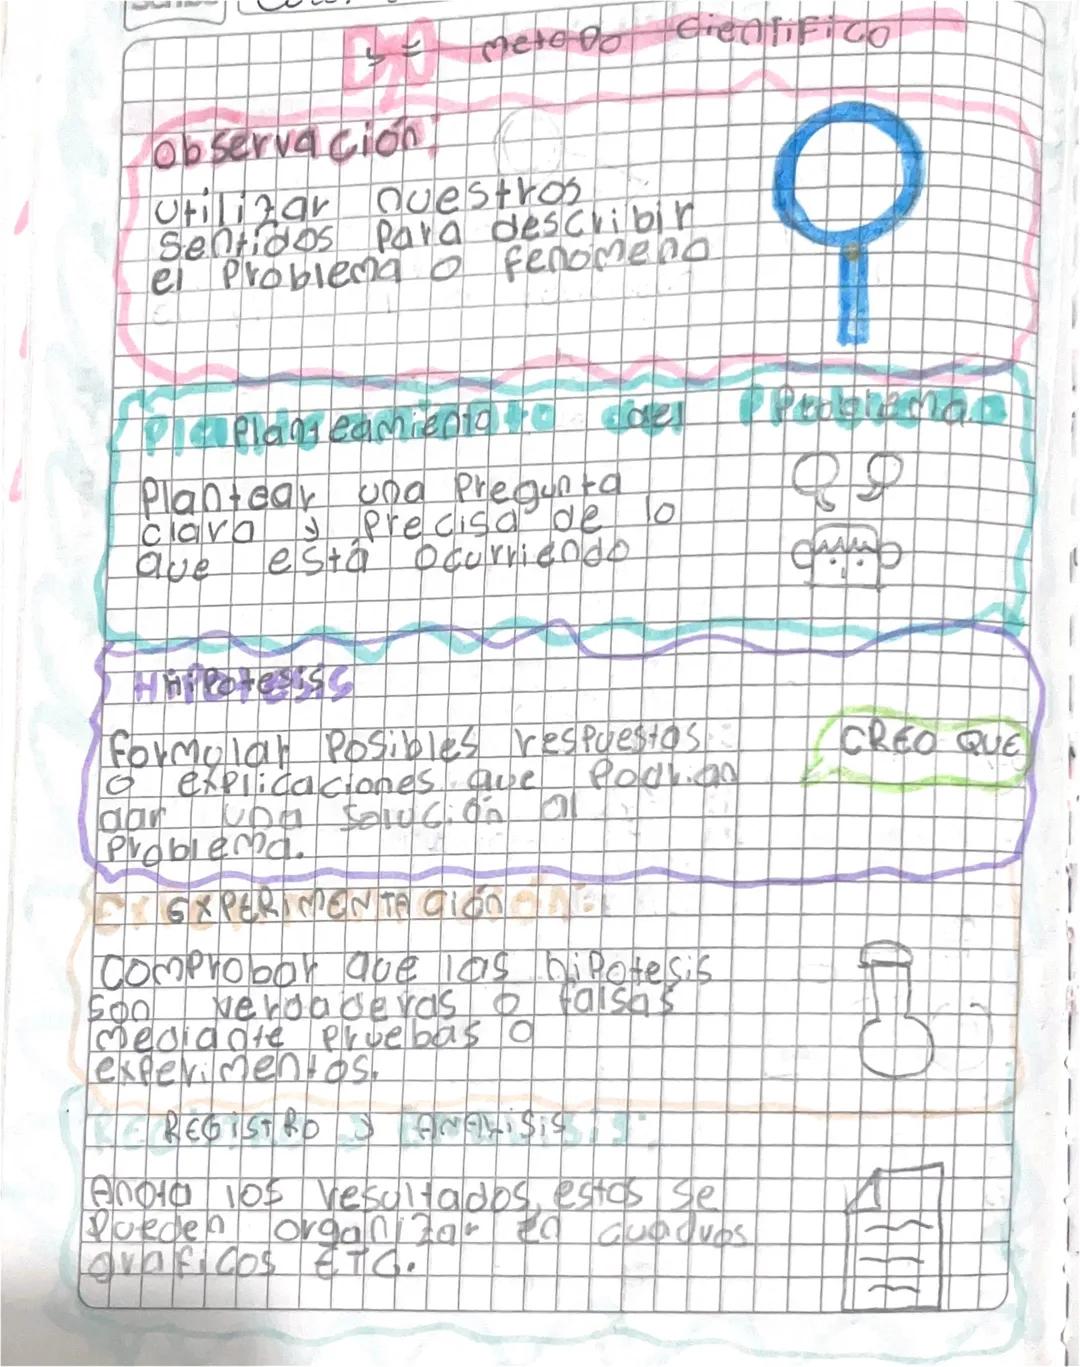 metodo Cientifico
Observación:
utilizar nuestros
sentidos para describir
el Problema o fenomeno
Planteamiento del Problema
Plantear una Pregunta
clara y Precisa de lo
que está ocurriendo
Hipotesis
formular Posibles respuestas
o explicaciones que Podrian
dar una solución al
Problema.
CREO QUE
EXPERIMENTACIÓN
comprobar que las hipotesis
son verdaderas o falsas
mediante pruebas o
experimentos.
REGISTRO y ANALISIS
Anota los resultados, estos se
Pueden organizar en cuadros
graficos ETC.